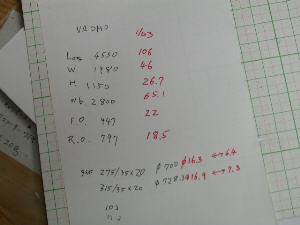 1/43
Log 4550 106
W 1980 46
H 1150 26.7
wb. 2800 65.1
F.O. 947 22
R.O. 797 18.5
275/35×20 φ700 φ16.3 ↔6.4
315/35×20 φ728.3 φ16.9 ↔7.3